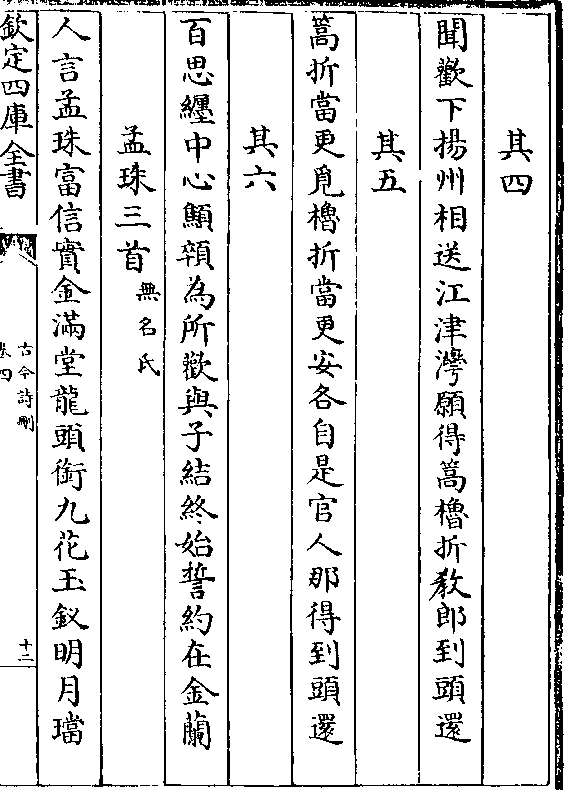 其四
聞歡下揚州相送江津灣願得篙櫓折教郎到頭還
其五
篙折當更覓櫓折當更安各自是官人那得到頭還
其六
百思纏中心顦顇為所歡與子結終始誓約在金蘭
孟珠三首無名氏
人言孟珠富信實金滿堂龍頭銜九花玉釵明月璫
欽定四庫全書
古今詩刪
卷四
十二